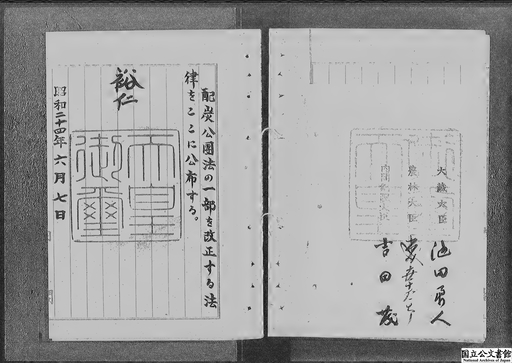 配炭公團法の一部を改正する法
律をここに公布する。
裕仁
天皇
御璽
昭和二十四年六月七日
大藏大臣
池田勇人
農林大臣
内閣總理大臣
吉田茂
国立公文書館
National Archives of Japan